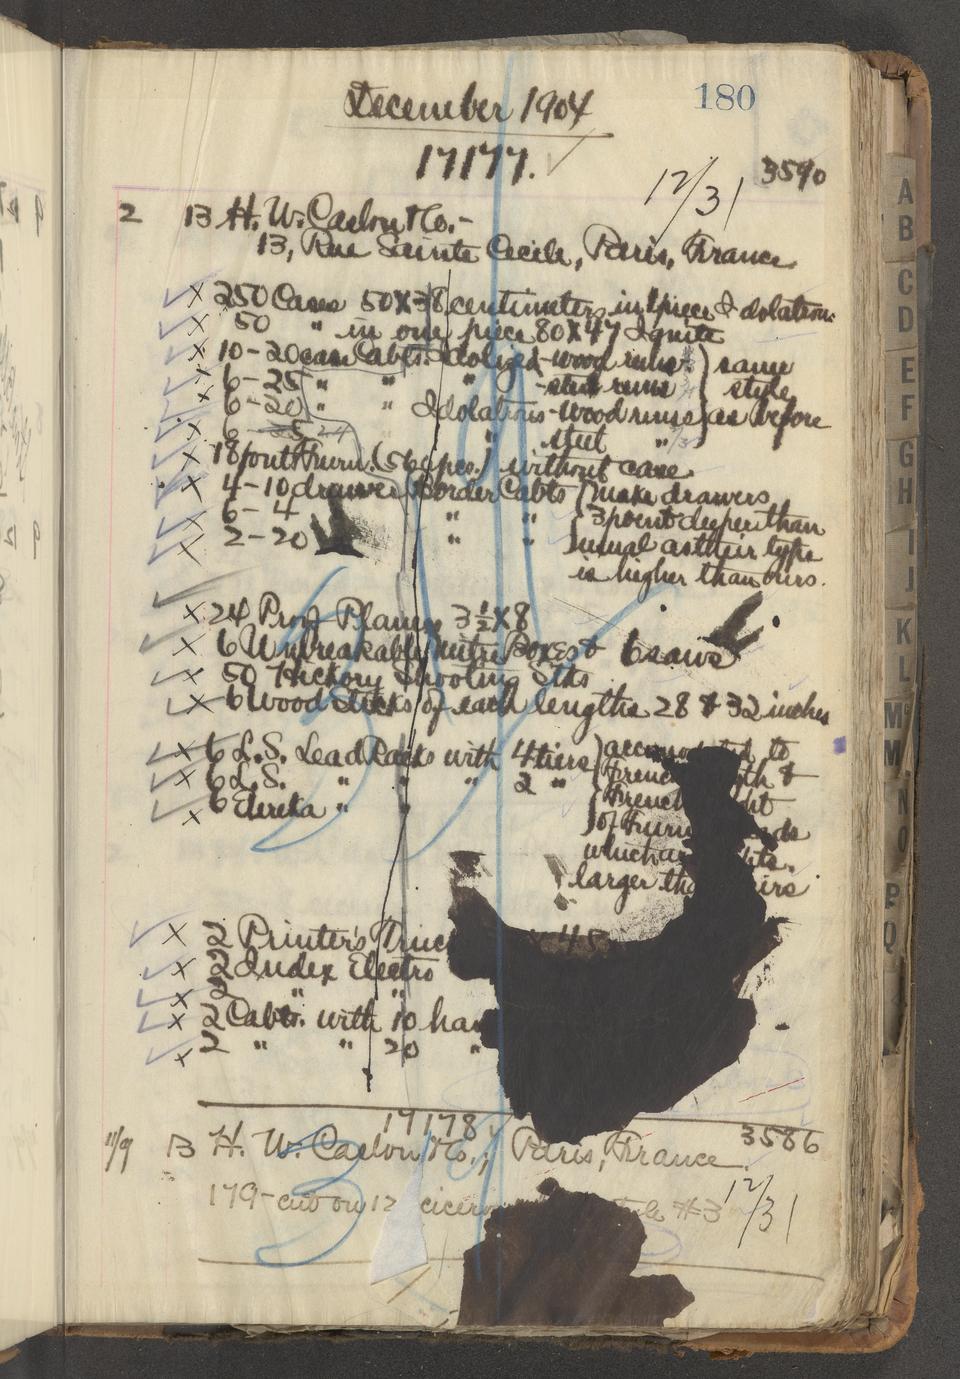 180
December 1904
17177.
3590
12/31
2 13 H. W. Caslon & Co. -
13, Rue Sainte Cecile, Paris, France
x 250 Cases 50 x 38 centimeters in 1 piece Idolation
x 50 " in one piece 80 x 47 Ignite
x 10-20 case Cabts. Idolized - wood runs } same
x 6-25 " " " - steel runs } style
x 6-20 " " Idolations - wood runs } as before
x 6- 24 " steel "
x 18 fonts Furn. ( pcs.) without case
x 4-10 drawer Border Cabts } make drawers
x 6-4 " " } 3 point deeper than
x 2-20 " " } usual as their type
is higher than ours.
x 24 Proof Planers 3 1/2 x 8
x 6 Unbreakable Mitre Boxes & 6 saws
x 50 Hickory Shooting Stks
x 6 Wood Sticks of each lengths 28 & 32 inches
x 6 L.S. Lead Racks with 4 tiers } to
x 6 L.S. " " " 2 " } French &
x 6 Eureka " " } French
of
which
larger
x 2 Printer's x 45
x 2 Index Electro
x 2 " "
x 2 Cabts. with 10
x 2 " " 20 "
17178
3586
11/9 13 H. W. Caslon & Co., Paris, France
179 - cut on 12 #3
12/31
A
B
C
D
E
F
G
H
I
J
K
L
M
M
N
O
P
Q